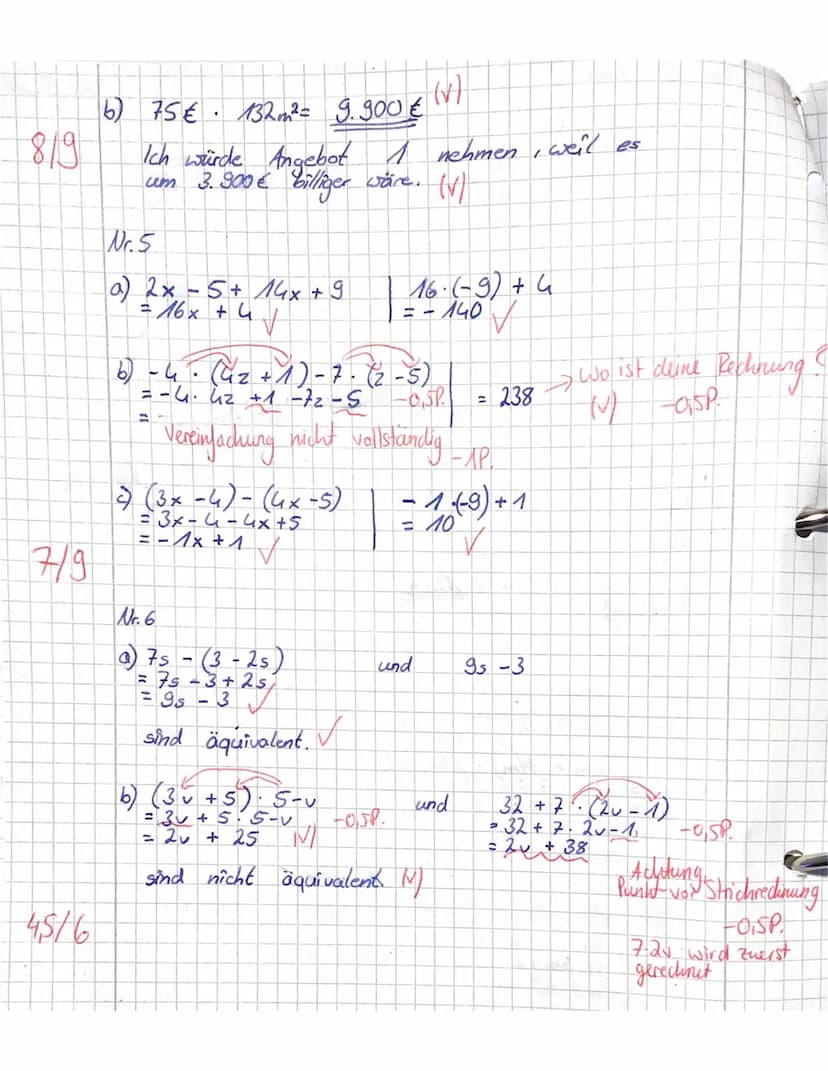 b) 75€ · 132m²= 9.900€ (√)
8/9
Ich würde Angebot 1 nehmen, weil es
um 3.900€ billiger wäre. (√)
Nr. 5
a) 2x - 5 + 14x + 9 | 16·(-9) + 4
= 16x + 4 ✓ | = -140 ✓
b) -4 · (4z + 1) - 7 · (z - 5) | = 238 → Wo ist deine Rechnung?
= -4 · 4z + 1 - 7z - 5 -0,5P. (√) -0,5P.
=
Vereinfachung nicht vollständig -1P.
c) (3x - 4) - (4x - 5) | -1·(-9) + 1
= 3x - 4 - 4x + 5 | = 10 ✓
= -1x + 1 ✓
7/9
Nr. 6
a) 7s - (3 - 2s) und 9s - 3
= 7s - 3 + 2s
= 9s - 3 ✓
sind äquivalent. ✓
b) (3v + 5) · 5 - v und 32 + 7 · (2v - 1)
= 3v + 5 · 5 - v -0,5P. = 32 + 7 · 2v - 1 -0,5P.
= 2v + 25 (√) = 2v + 38
sind nicht äquivalent. (√)
Achtung
Punkt-vor Strichrechnung
-0,5P.
4,5/6
7·2v wird zuerst
gerechnet